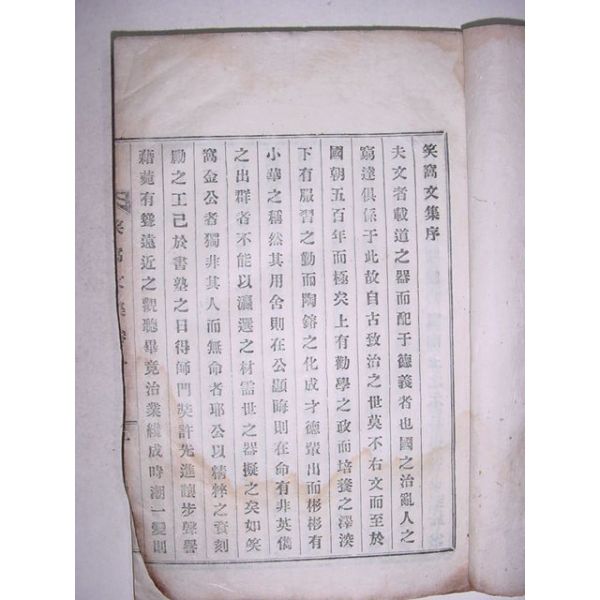 笑窩文集序
夫文者載道之器而配于德義者也國之治亂人之
窮達俱係于此故自古致治之世莫不右文而至於
國朝五百年而極矣上有勸學之政而培養之澤浹
下有服習之勤而陶鎔之化成才德輩出而彬彬有
小華之稱然其用舍則在公顯晦則在命有非英儁
之出群者不能以瀛選之材需世之器擬之矣如笑
窩金公者獨非其人而無命者耶公以精粹之資刻
勵之工已於書塾之日得師門奬許先進讓步聲譽
藉菀有聳遠近之觀聽畢竟治業纔成時潮一變則
笑窩文集